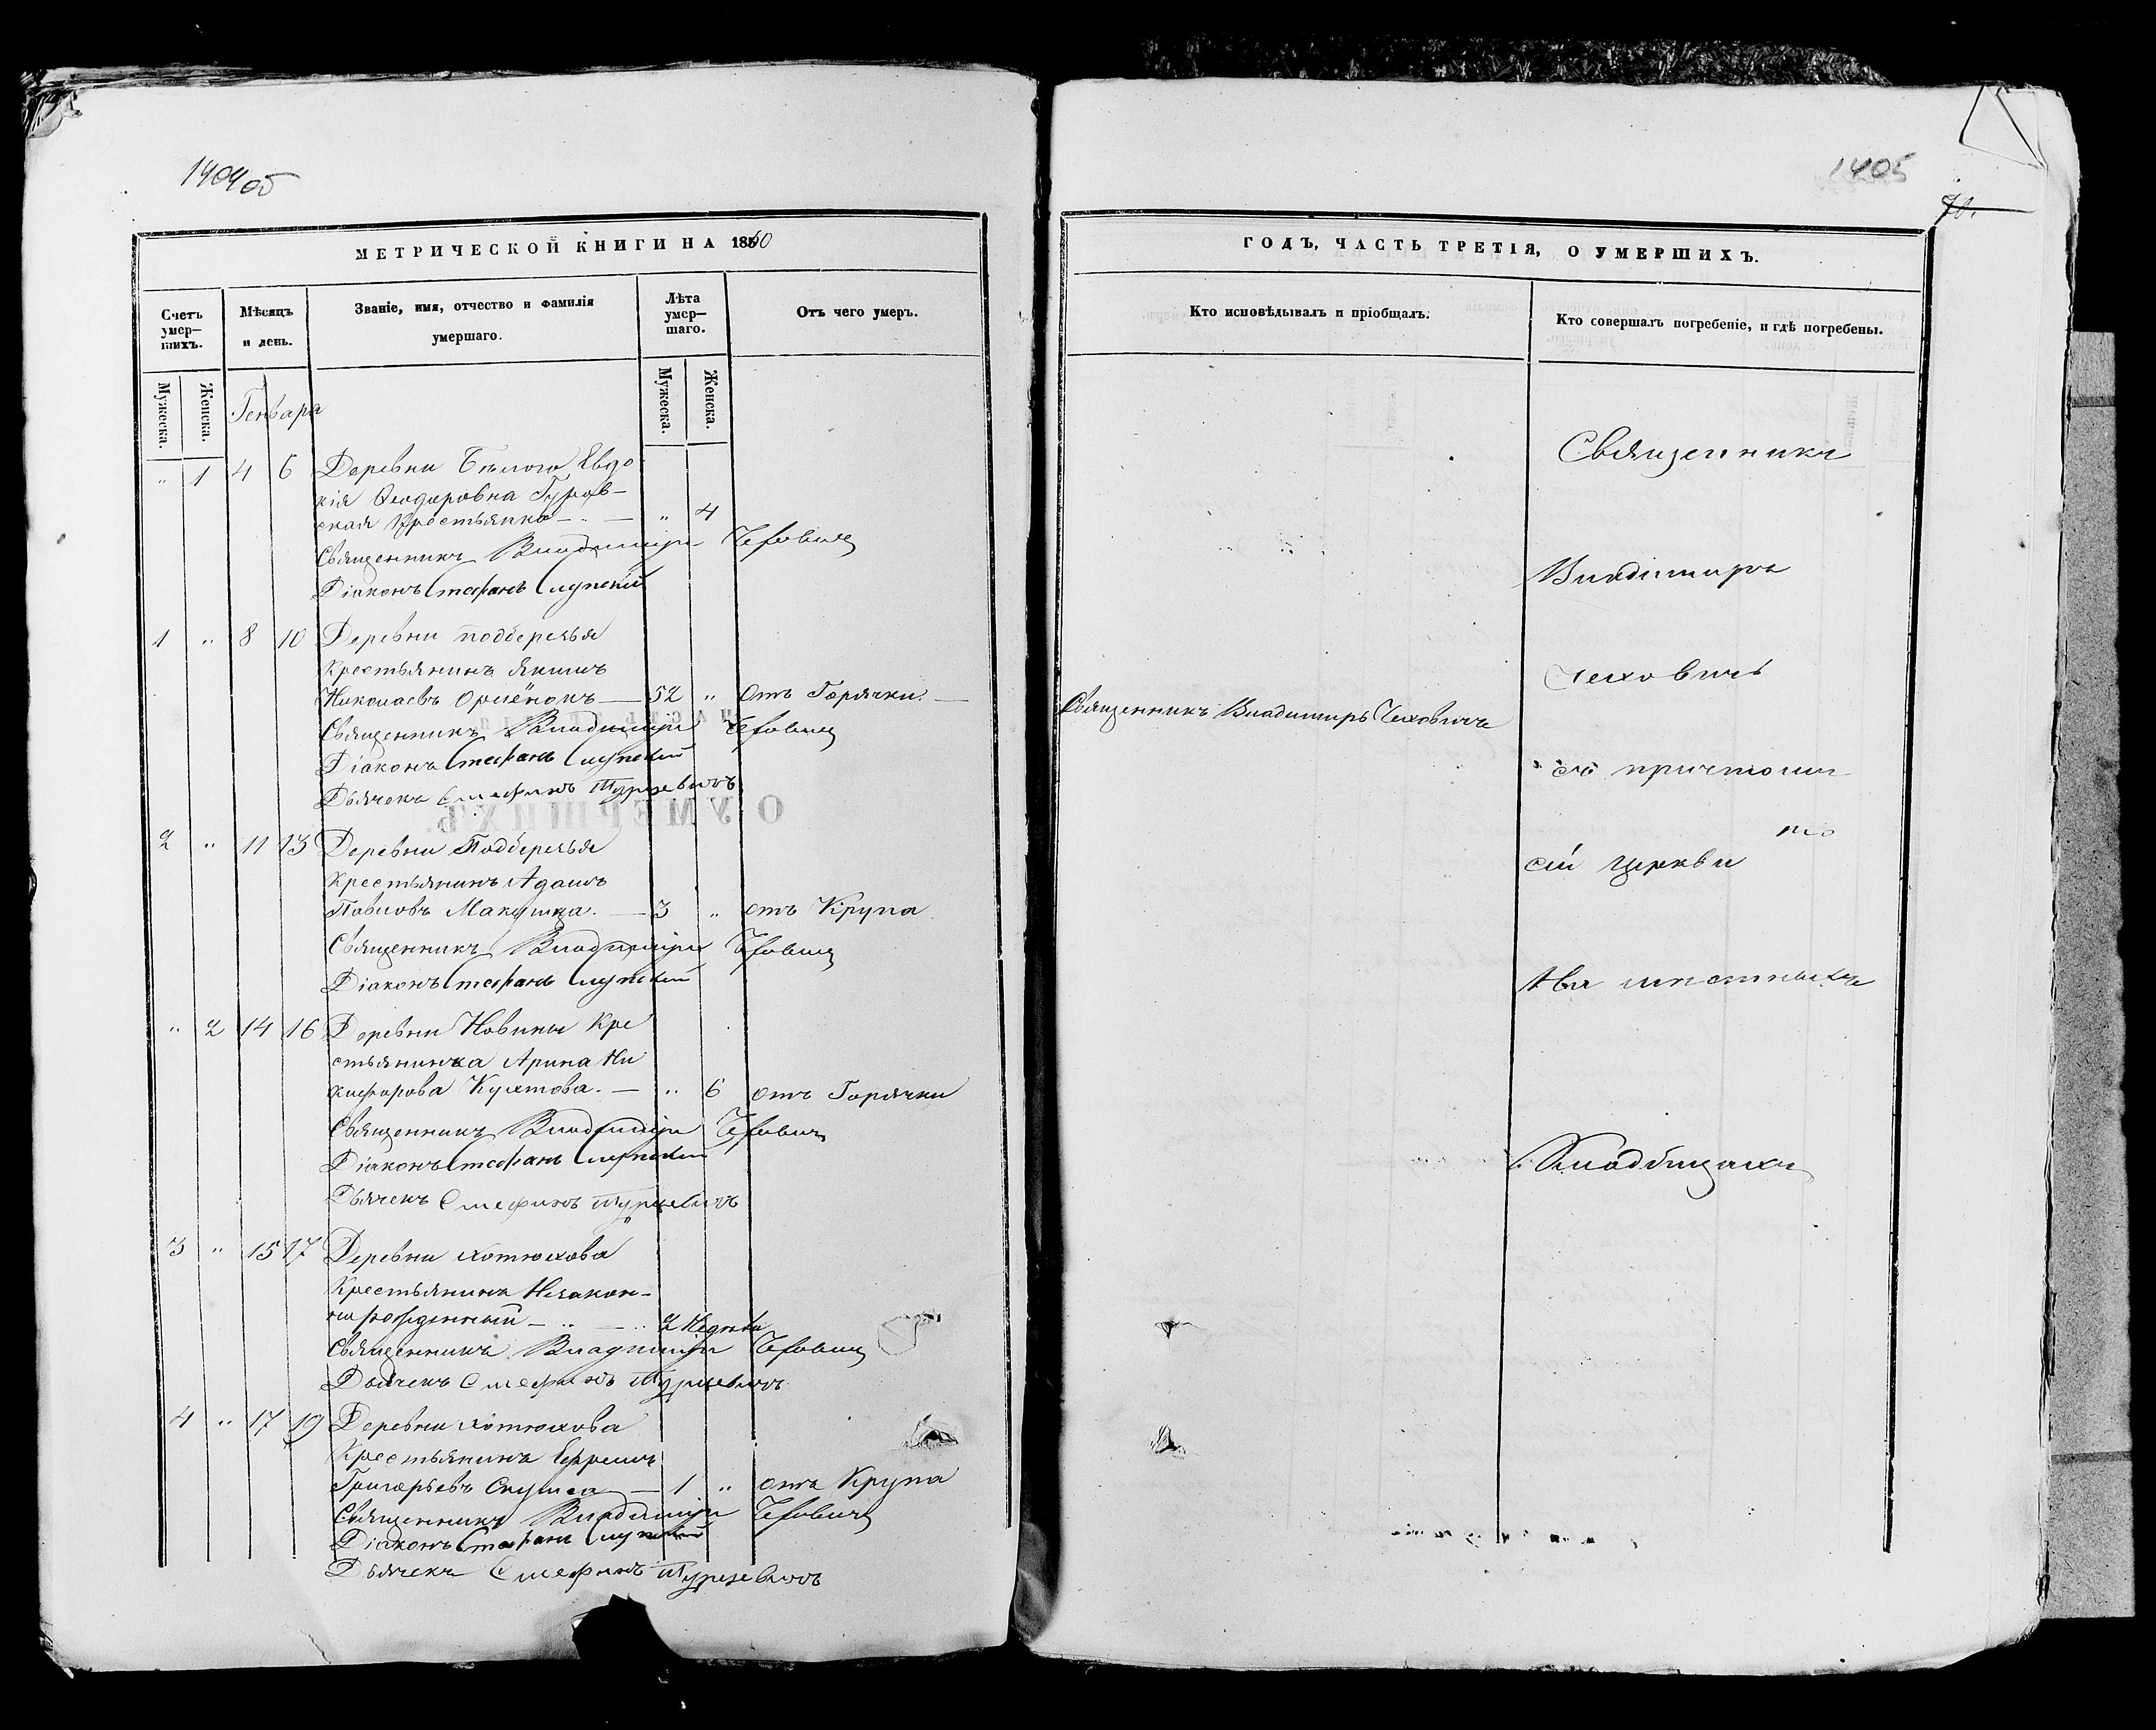 140405
МЕТРИЧЕСКОЙ КНИГИ НА 1860
Счетъ умер-шихъ.
Мѣсяцъ и день.
Званіе, имя, отчество и фамилія умершаго.
Лѣта умер-шаго.
Отъ чего умеръ.
Мужеска.
Женска.
Генваря
Мужеска.
Женска.
„ 1 4 6 Деревни Бѣлого Евдо
кія Ѳеодоровна Гуров-
ская Крестьянка — „ 4
Священникъ Владиміръ Чеховичъ
Діаконъ Стефанъ Слупскій
1 „ 8 10 Деревни Подберезья
Крестьянинъ Якимъ
Николаевъ Орлёнокъ — 52 „ Отъ Горячки. —
Священникъ Владиміръ Чеховичъ
Діаконъ Стефанъ Слупскій
Дьячекъ Стефанъ Турцевичъ
2 „ 11 13 Деревни Подберезья
Крестьянинъ Адамъ
Павловъ Макушка. — 3 „ отъ Крупа
Священникъ Владиміръ Чеховичъ
Діаконъ Стефанъ Слупскій
„ 2 14 16 Деревни Новины Кре
стьянинка Арина Ни
кифорова Кухтова. — „ 6 отъ Горячки
Священникъ Владиміръ Чеховичъ
Діаконъ Стефанъ Слупскій
Дьячекъ Стефанъ Турцевичъ
3 „ 15 17 Деревни Хотюхова
Крестьянинъ Незакон-
норожденный — „ — „ 2 Недѣли
Священникъ Владиміръ Чеховичъ
Дьячекъ Стефанъ Турцевичъ
4 „ 17 19 Деревни Хотюхова
Крестьянинъ Ефремъ
Григорьевъ — 1 „ отъ Крупа
Священникъ Владиміръ Чеховичъ
Діаконъ Стефанъ Слупскій
Дьячекъ Стефанъ Турцевичъ
1405
70.
ГОДЪ, ЧАСТЬ ТРЕТІЯ, О УМЕРШИХЪ.
Кто исповѣдывалъ и пріобщалъ.
Кто совершалъ погребеніе, и гдѣ погребены.
Священникъ
Владиміръ
Чеховичъ
Священникъ Владимиръ Чеховичъ
съ причтомъ
сей церкви
На мѣстныхъ
Кладбищахъ